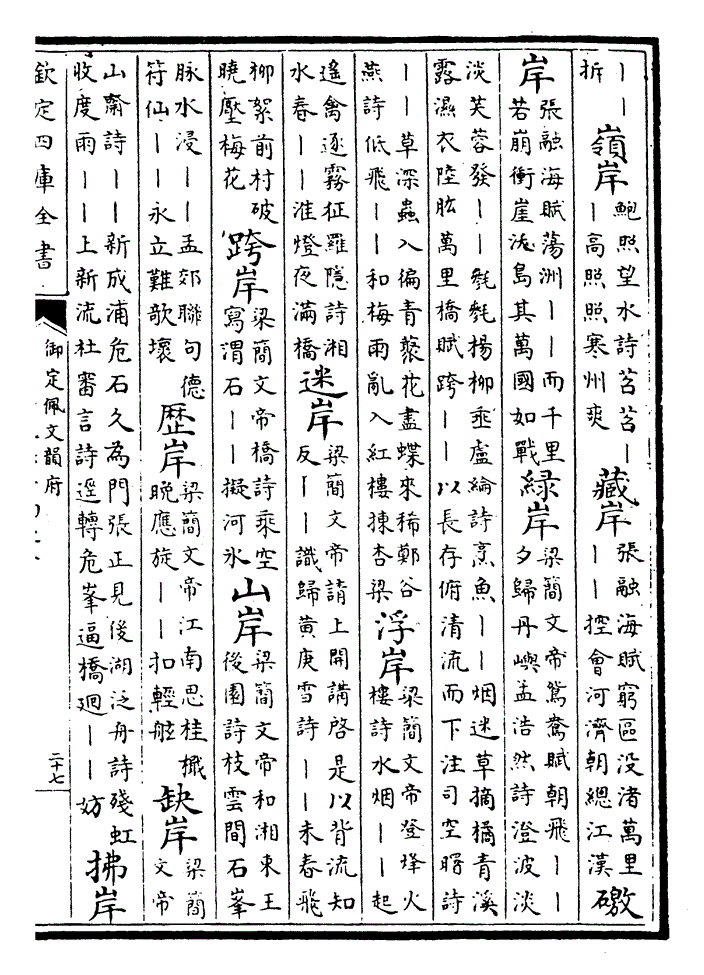 ——折嶺岸鮑照望水詩苕苕——高照照寒州爽藏岸張融海賦窮區没渚萬里——控會河濟朝總江漢礉
岸張融海賦蕩洲——而千里若崩衝崖沷島其萬國如戰緑岸梁簡文帝鴛鴦賦朝飛——夕歸丹嶼孟浩然詩澄波淡
淡芙蓉發——毿毿楊柳垂盧綸詩烹魚——烟迷草摘橘青溪露濕衣陸肱萬里橋賦跨——以長存俯清流而下注司空曙詩
——草深蟲入徧青藂花盡蝶來稀鄭谷燕詩低飛——和梅雨亂入紅樓揀杏梁浮岸梁簡文帝登烽火樓詩水烟——起
遙禽逐霧征羅隱詩湘水春——淮燈夜滿橋迷岸梁簡文帝請上開講啓是以背流知反——識歸黄庚雪詩——未春飛
柳絮前村破曉壓梅花跨岸梁簡文帝橋詩乘空寫渭石——擬河氷山岸梁簡文帝和湘東王後園詩枝雲間石峯
脉水浸——孟郊聯句德符仙——永立難歌壞歷岸梁簡文帝江南思桂檝晚應旋——扣輕舷缺岸梁簡文帝
山齋詩——新成浦危石久為門張正見後湖泛舟詩殘虹收度雨——上新流杜審言詩逕轉危峯逼橋廻——妨拂岸
欽定四庫全書
御定佩文韻府
二十七